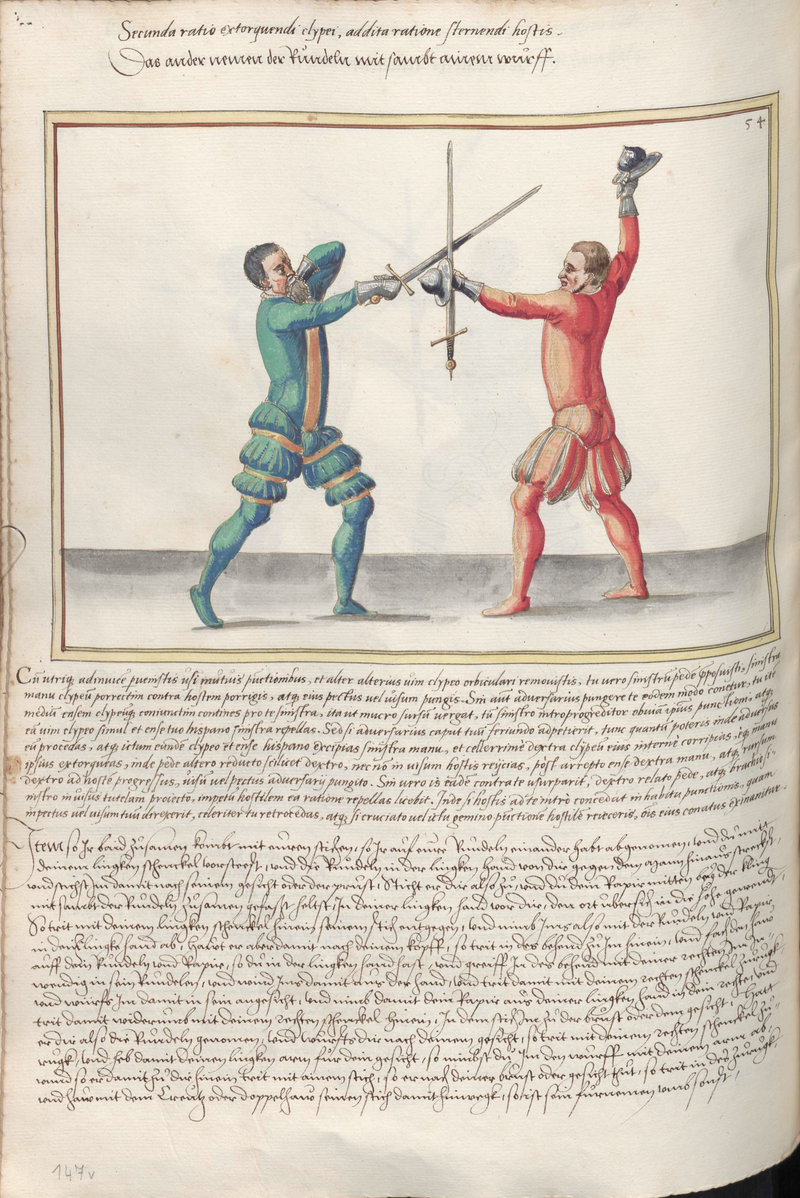 Secunda ratio extorquendi clypei, addita ratione sternendi hostis.
Das ander nemen der Rundeln mit sambt ainem wurff.
54
Cũ utriq; adinuicẽ puenistis usi mutuis pũctionibus, et alter alterius uim clypeo orbiculari remouistis, tu uero sinistrũ pedẽ pposuisti, sinistra
manu clypeũ porrectim contra hostem porrigis, atq; eius pectus uel uisum pungis. Sin aũt aduersarius pungere te eodem modo conetur, tu itẽ
mediũ ensem clypeũq; coniunctim contines pro te sinistra, ita ut mucro sursũ uergat, tũ sinistro introprogreditor obuiã ipsius punctioni, atq;
eã uim clypeo simul et ense tuo hispano sinistra repellas. Sed si aduersarius caput tuũ feriundo adpetierit, tunc quantũ poteris inde aduersus
eũ procedas, atq; ictum eundẽ clypeo et ense hispano excipias sinistra manu, et cellerrimè dextra clypeũ eius internè corripias, eq; manu
ipsius extorqueas, inde pede altero reducto scilicet dextro, necnõ in uisum hostis reijcias, pòst arrepto ense dextra manu, atq; rursum
dextro ad hostẽ progressus, uisũ uel pectus aduersarij pungito. Sin uero is eadẽ contra te usurparit, dextro relato pede, atq; brachio si-
nistro in uisus tutelam proiecto, impetũ hostilem ea ratione repellas licebit. Inde si hostis ad te intrò concedat in habitu punctionis, quam
in pectus uel uisum tuũ direxerit, celeriter tu retrocedas, atq; si cruciato uel ictu gemino pũctionẽ hostilẽ reieceris, oĩs eius conatus exinanitur.
Item so Ir baid zusamen kombt mit ewren stichen, so Ir auf ewre Rundeln ainander habt abgenomen, unnd du mit
deinem lingken schenckel vorsteest, unnd die Rundeln in der lingken hand von dir gegen dem mann hinaus streckst,
unnd stichst Im damit nach seinem gesicht oder der prust, Sticht er dir also zu, unnd du dein Rapir mitten bey der kling
mit sambt der Rundeln zusamen gefasst heltst, In deiner lingken hand vor dir, den ort ubersich in die höhe gewendt,
So trit mit deinem lingken schenckel hinein seinem stich entgegen, unnd nimb Ims also mit der Rundeln und Rapir,
in dein lingke hand ab, hawt er aber damit nach deinem kopff, so trit in des behend zu Im hinein, unnd fach den haw
auff dein Rundeln unnd Rapir, so du in der lingken hand hast, unnd greiff In des behend mit deiner rechten Im In-
wendig in sein Rundelen, unnd wind Ims damit aus der hand, unnd trit damit mit deinem rechten schenckel zurugk,
unnd würffs Im damit in sein angesicht, unnd nimb damit dein Rapir aus deiner lingken hand in dein rechte, und
trit damit widerumb mit deinem rechten schenckel hinein, In dem stich Im zu der brust oder dem gesicht, Hatt
er dir also die Rundeln genomen, unnd wurffts dir nach deinem gesicht, so trit mit deinem rechten schenckel zu-
rugk, unnd heb damit deinen lingken arm für dein gesicht, so nimbst du Im den wurff mit deinem arm ab,
unnd so er damit zu dir hinein trit mit ainem stich, so er nach deiner brust oder gesicht thut, so trit in des zurugk,
unnd haw mit dem Creutz oder doppelhaw seinen stich damit hinwegk, so ist sein furnemen umb sonst,
147v